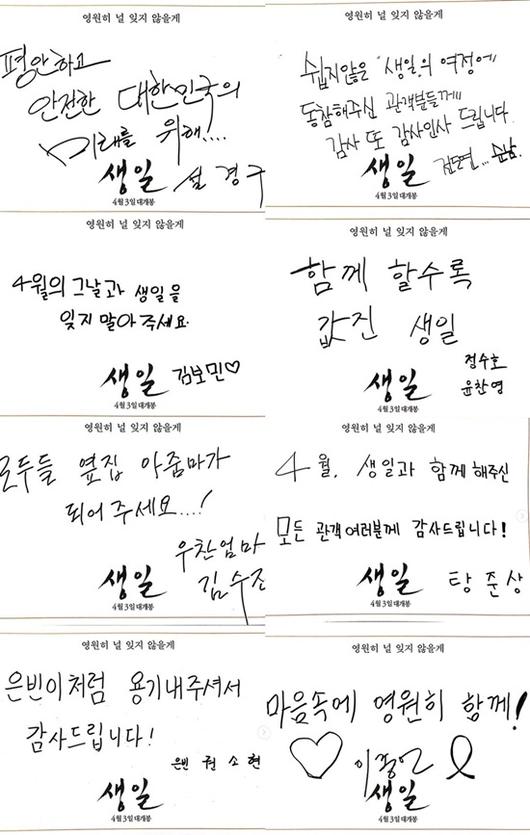 영원히 널 잊지 않을게
평안하고
안전한 대한민국의
미래를 위해....
생일 설경구
4월 3일 대개봉
영원히 널 잊지 않을게
쉽지않은 "생일의 여정에"
동참해주신 관객분들께
감사 또 감사인사 드립니다
생일 전도연... 순남.
4월 3일 대개봉
영원히 널 잊지 않을게
4월의 그날과 생일을
잊지 말아 주세요.
생일 김보민♡
4월 3일 대개봉
영원히 널 잊지 않을게
함께 할수록
값진 생일
정수호
생일 윤찬영
4월 3일 대개봉
영원히 널 잊지 않을게
모두들 옆집 아줌마가
되어 주세요...!
우찬엄마
생일 김수진
4월 3일 대개봉
영원히 널 잊지 않을게
4월, 생일과 함께 해주신
모든 관객여러분께 감사드립니다!
생일 탕준상
4월 3일 대개봉
영원히 널 잊지 않을게
은빈이처럼 용기내주셔서
감사드립니다!
은빈 권소현
생일
4월 3일 대개봉
영원히 널 잊지 않을게
마음속에 영원히 함께!
♡ 이종언
생일
4월 3일 대개봉